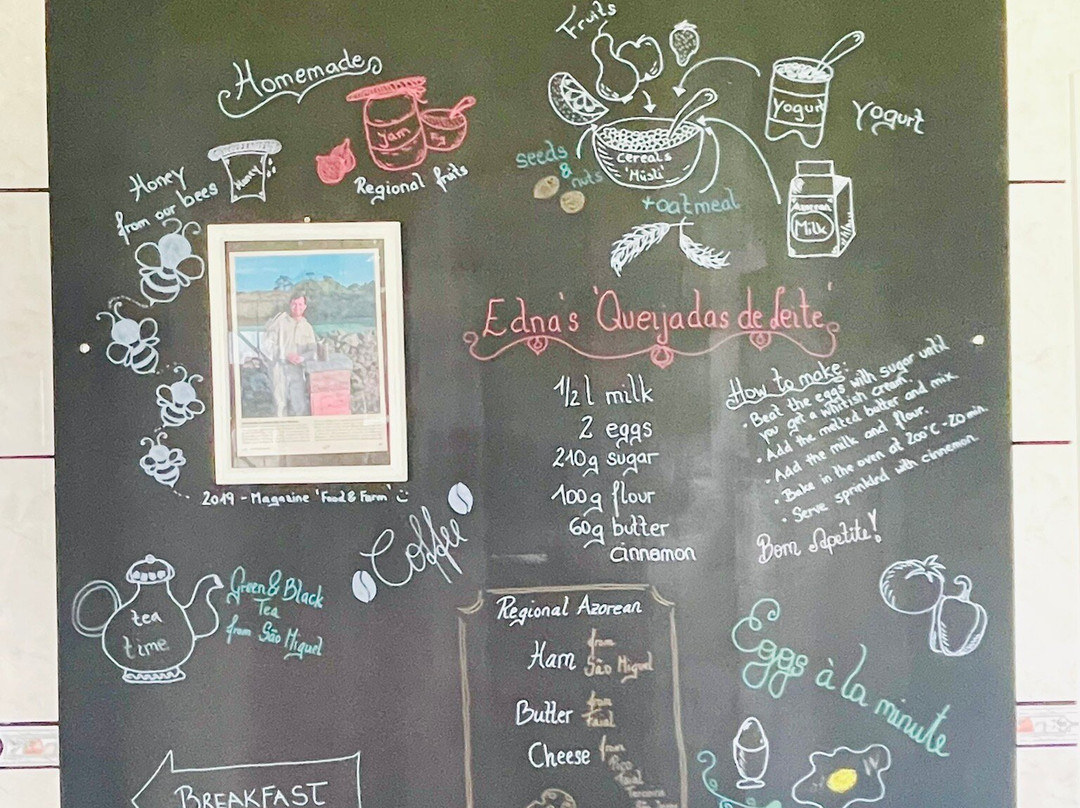 Homemade
Jam
Fig
Regional fruits
Honey
from our bees
Honey
2019 - Magazine 'Food & Farm'
Fruits
Yogurt
Yogurt
Cereals
'Müsli'
seeds
&
nuts
+oatmeal
Azorean
Milk
Edna's 'Queijadas de Leite'
1/2 l milk
2 eggs
210g sugar
100g flour
60g butter
cinnamon
How to make:
• Beat the eggs with sugar until
you get a whitish cream.
• Add the melted butter and mix.
• Add the milk and flour.
• Bake in the oven at 200°C - 20 min.
• Serve sprinkled with cinnamon.
Bom Apetite!
Coffee
tea
time
Green & Black
Tea
from São Miguel
Regional Azorean
Ham from
São Miguel
Butter from
Faial
Cheese from
Pico
Faial
Terceira
Eggs à la minute
BREAKFAST